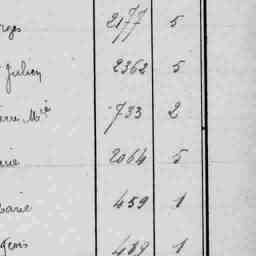 rges 2177 5
Julien 2362 5
Mie 733 2
rie 2064 5
Marie 459 1
çois 489 1